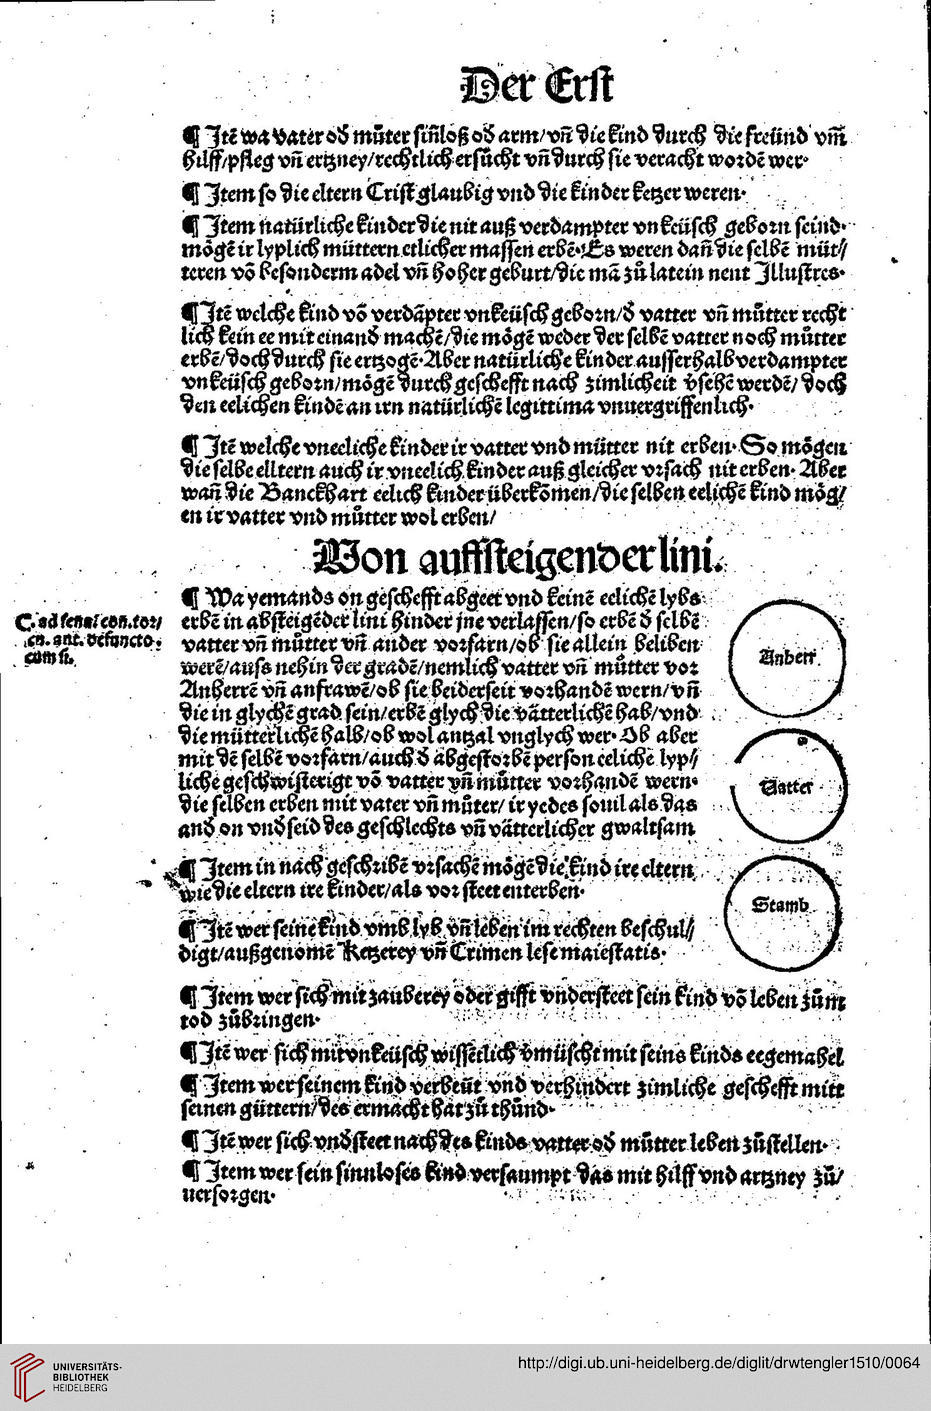 Der Erst
¶ Jtē wa vater od̄ můter siñloß od̄ arm/ vñ die kind durch die freünd vm̄
hilff/pfleg vñ ertzney/rechtlich ersůcht vñ durch sie veracht wordē wer·
¶ Jtem so die eltern Crist glaubig vnd die kinder ketzer weren·
¶ Jtem natürliche kinder die nit auß verdampter vnkeüsch geborn seind·
mögē ir lyplich müttern etlicher massen erbē· Es weren dañ die selbē müt//
teren vō besonderm adel vñ hoher geburt/die mā zů latein nent Jllustres·
¶ Jtē welche kind vō verdāpter vnkeüsch geborn/d̄ vatter vñ můtter recht
lich kein ee mit einand̄ machē/die mögē weder der selbē vatter noch můtter
erbē/doch durch sie ertzogē· Aber natürliche kinder ausserhalb verdampter
vnkeüsch geborn/mögē durch geschefft nach zimlicheit v̄sehē werdē/ doch
den eelichen kindē an irn natürlichē legittima vnuergriffenlich·
¶ Jtē welche vneeliche kinder ir vatter vnd mütter nit erben· So mögen
die selbe elltern auch ir vneelich kinder auß gleicher vrsach nit erben· Aber
wañ die Banckhart eelich kinder überkōmen/die selben eelichē kind mög/
en ir vatter vnd můtter wol erben/
Von auffsteigender lini.
¶ Wa yemands on geschefft abgeet vnd keinē eelichē lybs
erbē in absteigēder lini hinder jne verlassen/so erbē d̄ selbē
vatter vñ můtter vñ ander vorfarn/ob sie allein beliben
werē/auss nehin der gradē/nemlich vatter vñ můtter vor
Anherrē vñ anfrawē/ob sie beiderseit vorhandē wern/vñ
die in glychē grad sein/erbē glych die vätterlichē hab/vnd
die mütterlichē halb/ob wol antzal vnglych wer· Ob aber
mit dē selbē vorfarn/auch d̄ abgestorbē person eelichē lyp//
liche geschwisterigt vō vatter vñ můtter vorhandē wern·
die selben erben mit vater vñ můter/ ir yedes souil als das
and̄ on vnd̄seid des geschlechts vñ vätterlicher gwaltsam
C. ad senat con. tor/
cn. ant. defuncto·
rum fi.
Anherr
Vatter
Stamb
¶ Jtem in nach geschribē vrsachē mögē die kind ire eltern
wie die eltern ire kinder/als vor steet enterben·
¶ Jtē wer seine kind vmb lyb vñ leben im rechten beschul//
digt/außgenomē Ketzerey vñ Crimen lese maiestatis·
¶ Jtem wer sich mit zauberey oder gifft vndersteet sein kind vō leben zům
tod zůbringen·
¶ Jtē wer sich mit vnkeüsch wissētlich v̄müscht mit seins kinds eegemahel
¶ Jtem wer seinem kind verbeüt vnd verhindert zimliche geschefft mitt
seinen güttern/des er macht hat zů thůnd·
¶ Jtē wer sich vnd̄steet nach des kinds vatter od̄ můtter leben zůstellen·
¶ Jtem wer sein sinnloses kind versaumpt das mit hilff vnd artzney zů/
uersorgen·
UNIVERSITÄTS-
BIBLIOTHEK
HEIDELBERG
http://digi.ub.uni-heidelberg.de/diglit/drwtengler1510/0064